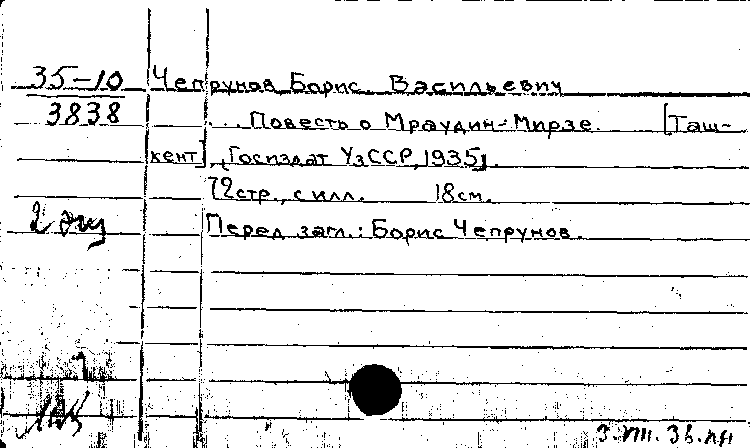 35-10 Чепрунов Борис Васильевич
3838 ... Повесть о Мраудин-Мирзе. [Таш-
кент], [Госиздат УзССР, 1935].
72 стр., с илл. 18 см.
2 экз Перед загл.: Борис Чепрунов.
3.VIII.36.